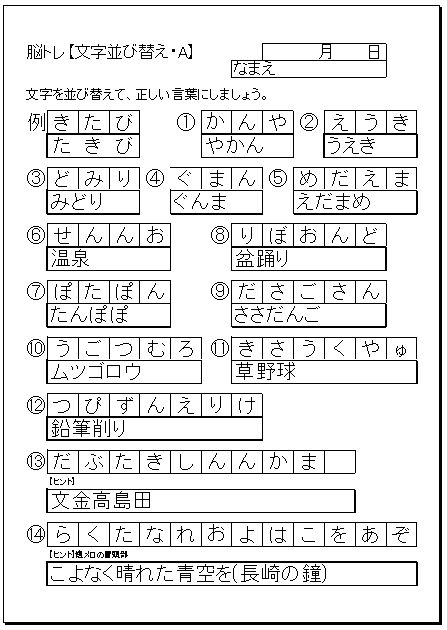 脳トレ【文字並び替え・A】 月 日
なまえ
文字を並び替えて、正しい言葉にしましょう。
例 き た び ① か ん や ② え う き
た き び やかん うえき
③ ど み り ④ ぐ ま ん ⑤ め だ え ま
みどり ぐんま えだまめ
⑥ せ ん ん お ⑧ り ぼ お ん ど
温泉 盆踊り
⑦ ぽ た ぽ ん ⑨ だ さ ご さ ん
たんぽぽ ささだんご
⑩ う ご つ む ろ ⑪ き さ う く や ゅ
ムツゴロウ 草野球
⑫ つ ぴ ず ん え り け
鉛筆削り
⑬ だ ぶ た き し ん ん か ま
【ヒント】
文金高島田
⑭ ら く た な れ お よ は こ を あ ぞ
【ヒント】懐メロの冒頭部
こよなく晴れた青空を(長崎の鐘)